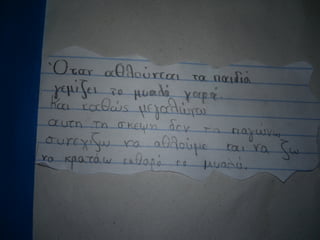 Όταν αθλούνται τα παιδιά
γεμίζει το μυαλό χαρά.
Και καθώς μεγαλώνω
αυτή τη σκέψη δεν τη παγώνω
συνεχίζω να αθλούμαι και να ζω
να κρατάω καθαρό το μυαλό.